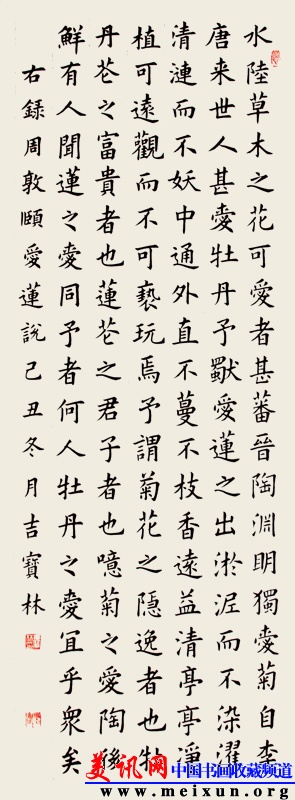 水陸草木之花可愛者甚蕃晉陶淵明獨愛菊自李
唐来世人甚愛牡丹予獨愛蓮之出淤泥而不染濯
清漣而不妖中通外直不蔓不枝香遠益清亭亭淨
植可遠觀而不可褻玩焉予謂菊花之隱逸者也牡
丹芲之富貴者也蓮芲之君子者也噫菊之愛陶後
鮮有人聞蓮之愛同予者何人牡丹之愛冝乎眾矣
右録周敦頤愛蓮説己丑冬月吉寶林
美讯网 中国书画收藏频道
www.meixun.org